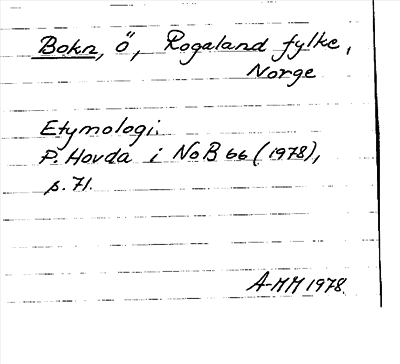 Bokn, ö, Rogaland fylke,
Norge
Etymologi:
P. Hovda i NoB 66 (1978),
s. 71.
A-MM 1978.